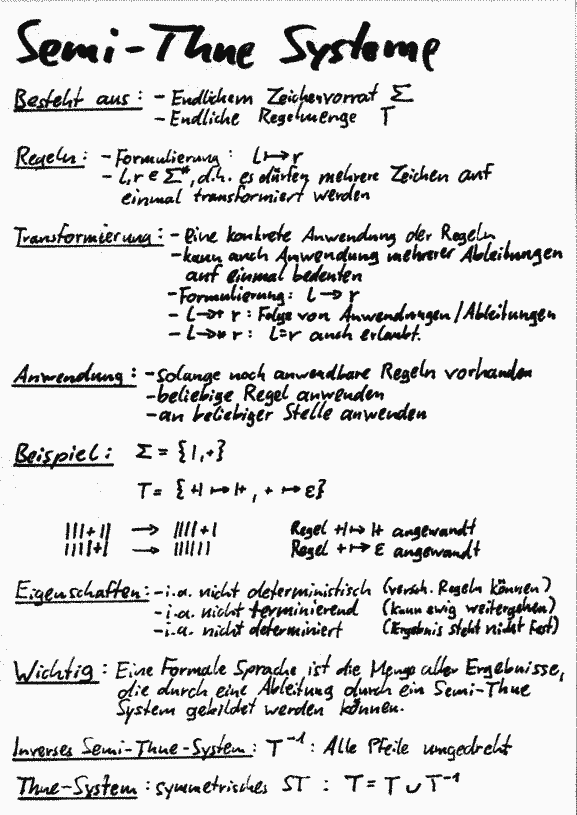 Semi-Thue Systeme
Besteht aus: - Endlichem Zeichenvorrat Σ
- Endliche Regelmenge T
Regeln: - Formulierung: l ↦ r
- l, r ∈ Σ*, d.h. es dürfen mehrere Zeichen auf
einmal transformiert werden
Transformierung: - eine konkrete Anwendung der Regeln
- kann auch Anwendung mehrerer Ableitungen
auf einmal bedeuten
- Formulierung: l → r
- l →+ r: Folge von Anwendungen/Ableitungen
- l →* r: l=r auch erlaubt.
Anwendung: - solange noch anwendbare Regeln vorhanden
- beliebige Regel anwenden
- an beliebiger Stelle anwenden
Beispiel: Σ = {|,+}
T = {+| ↦ |+, + ↦ ε}
|||+|| → ||||+| Regel +| ↦ |+ angewandt
||||+| → |||||| Regel + ↦ ε angewandt
Eigenschaften: - i.a. nicht deterministisch (versch. Regeln können)
- i.a. nicht terminierend (kann ewig weitergehen)
- i.a. nicht determiniert (Ergebnis steht nicht fest)
Wichtig: Eine Formale Sprache ist die Menge aller Ergebnisse,
die durch eine Ableitung durch ein Semi-Thue
System gebildet werden können.
Inverses Semi-Thue-System: T⁻¹: Alle Pfeile umgedreht
Thue-System: symmetrisches ST: T = T ∪ T⁻¹